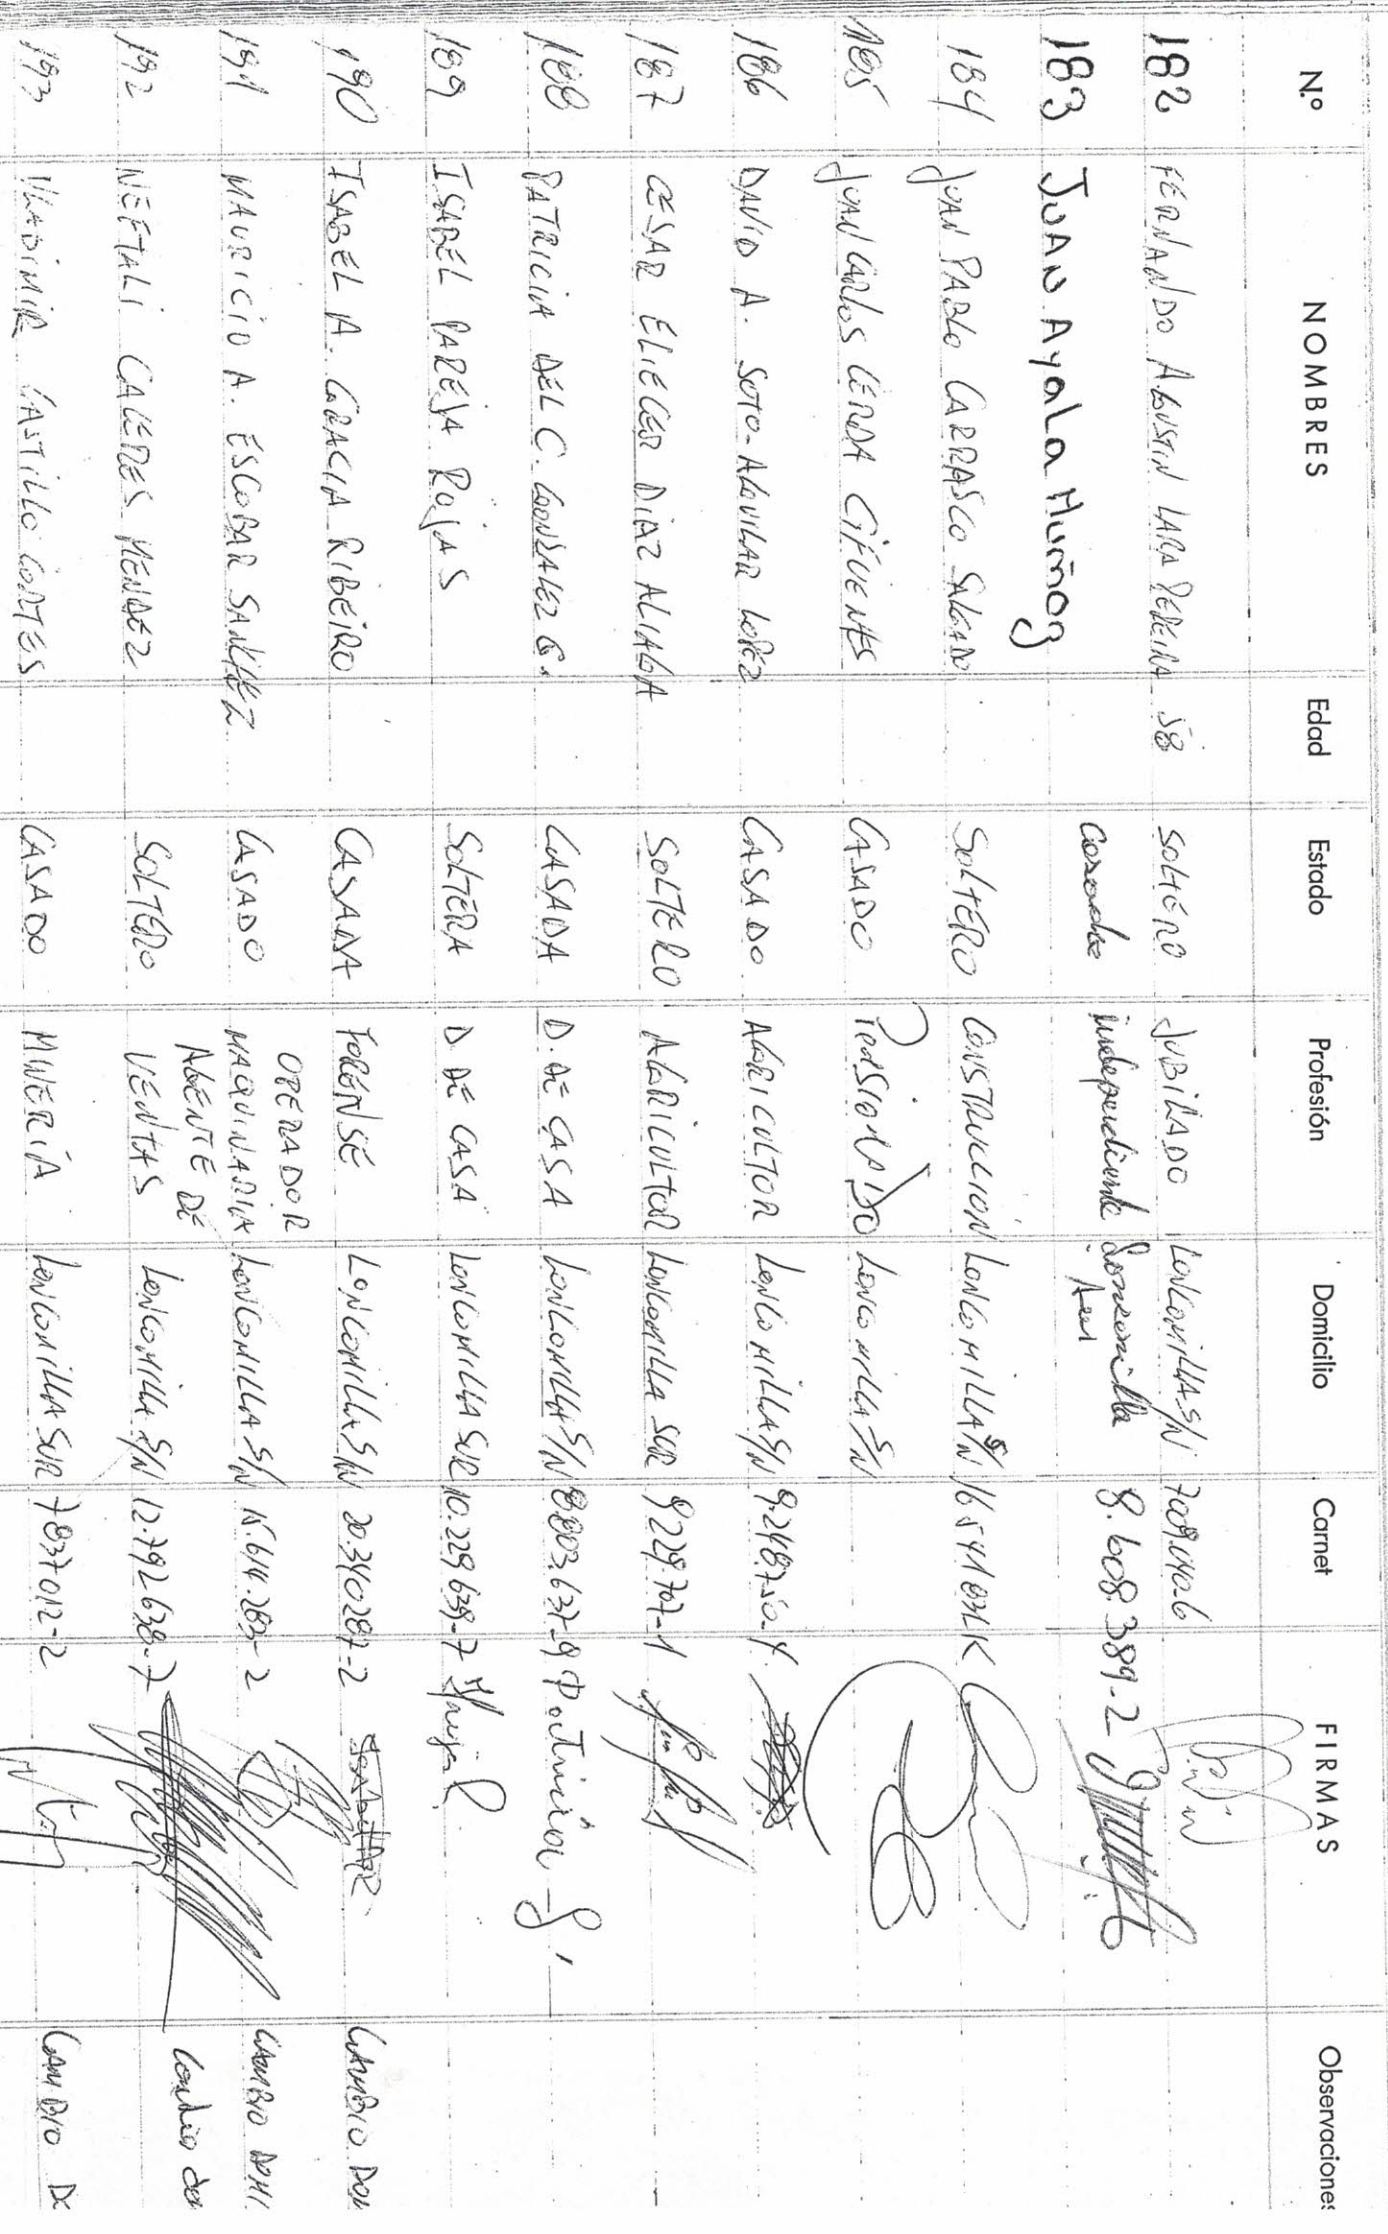 N.º NOMBRES Edad Estado Profesión Domicilio Carnet FIRMAS Observaciones
182 FERNANDO AGUSTIN LARA PEREIRA 58 SOLTERO JUBILADO LONCOMILLA S/N 7.009.040.6
183 JUAN Ayala Muñoz Casado independiente Loncomilla Sur 8.608.389-2
184 JUAN PABLO CARRASCO SALGADO SOLTERO CONSTRUCCIÓN LONCOMILLA S/N
185 JUAN CARLOS CERDA CIFUENTES CASADO PENSIONADO LONCOMILLA S/N
186 DAVID A. SOTO-AGUILAR LOPEZ CASADO AGRICULTOR LONCOMILLA S/N 9.248750-4
187 CESAR ELIECER DIAZ ALIAGA SOLTERO AGRICULTOR LONCOMILLA SUR 9.229.707-1
188 PATRICIA DEL C. GONZALEZ G. CASADA D. DE CASA LONCOMILLA S/N 8.803.637-9 Patricia G
189 ISABEL PAREJA ROJAS SOLTERA D. DE CASA LONCOMILLA SUR 10.229639-7
190 ISABEL A. GRACIA RIBEIRO CASADA FORENSE LONCOMILLA S/N 20.340287-2 CAMBIO DOM
191 MAURICIO A. ESCOBAR SANCHEZ CASADO OPERADOR MAQUINARIA LONCOMILLA S/N 15.614.283-2 CAMBIO DOMI
192 NEFTALI CACERES MENDEZ SOLTERO AGENTE DE VENTAS LONCOMILLA S/N 12.792638-7 Cambio dom
193 VLADIMIR CASTILLO CORTES CASADO MINERÍA LONCOMILLA SUR 7837012-2 CAMBIO D